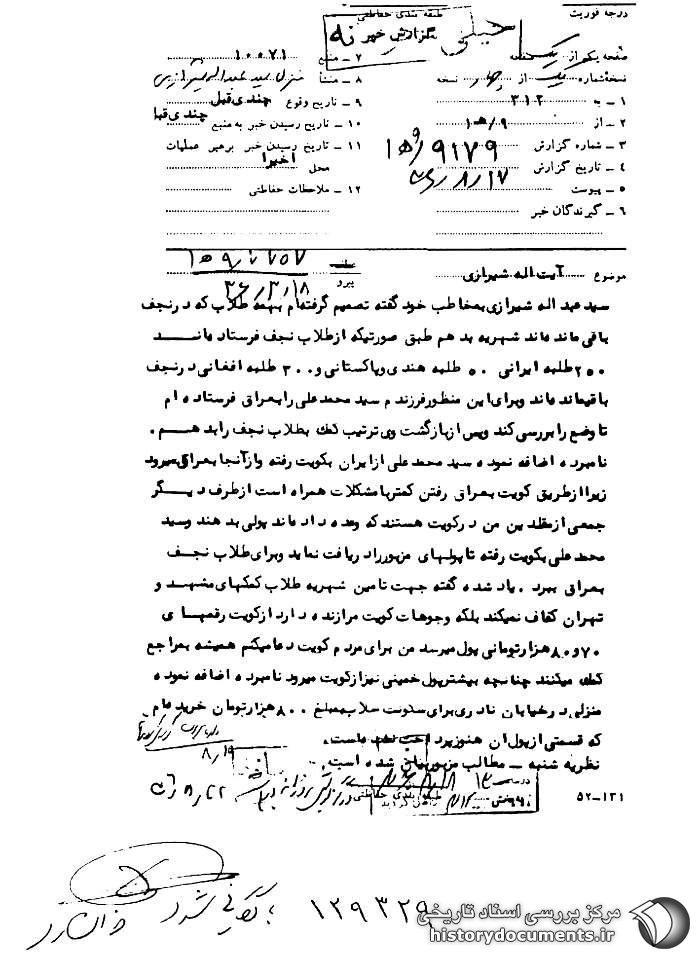 درجه فوریت
طبقه بندی حفاظتی
خیلی
گزارش خبر
صفحه یکم از یک صفحه
نسخه شماره یک از چهار نسخه
۱ - به ۳۱۲
۲ - از ۹/ه۱
۳ - شماره گزارش ۹۱۷۹/ه۱
۴ - تاریخ گزارش ۱۷/۸/
۵ - پیوست
۶ - گیرندگان خبر
۷ - منبع ۱۰۰۷۱
۸ - منشأ منزل سید عبداله شیرازی
۹ - تاریخ وقوع چندی قبل
۱۰ - تاریخ رسیدن خبر به منبع چندی قبل
۱۱ - تاریخ رسیدن خبر برهبر عملیات
محل اخیرا
۱۲ - ملاحظات حفاظتی
موضوع آیت اله شیرازی
پیرو
۳۶/۳/۱۸
سید عبد اله شیرازی بمخاطب خود گفته تصمیم گرفته‌ام بهمه طلاب که در نجف
باقی مانده‌اند شهریه بدهم طبق صورتیکه از طلاب نجف فرستاده‌اند
۲۵۰ طلبه ایرانی ۵۰ طلبه هندی و پاکستانی و ۳۰۰ طلبه افغانی در نجف
باقیمانده‌اند و برای این منظور فرزندم سید محمد علی را بعراق فرستاده ام
تا وضع را بررسی کند و پس از بازگشت وی ترتیب کمک بطلاب نجف را بدهم.
نامبرده اضافه نموده سید محمد علی از ایران بکویت رفته و از آنجا بعراق میرود
زیرا از طریق کویت بعراق رفتن کمتر با مشکلات همراه است از طرف دیگر
جمعی از مقلدین من در کویت هستند که وعده داده‌اند پولی بدهند و سید
محمد علی بکویت رفته تا پولهای مزبور را دریافت نماید و برای طلاب نجف
بعراق ببرد. یاد شده گفته جهت تامین شهریه طلاب کمکهای مشهد و
تهران کفاف نمیکند بلکه وجوهات کویت مرا زنده دارد از کویت رقمهای
۷۰ و ۸۰ هزار تومانی پول میرسد من برای مردم کویت دعا میکنم همیشه بمراجع
کمک میکنند چنانچه بیشتر پول خمینی نیز از کویت میرود نامبرده اضافه نموده
منزلی در خیابان نادری برای سکونت طلاب بمبلغ ۸۰۰ هزار تومان خریده‌ام
که قسمتی از پول آن هنوز پرداخت نشده است.
نظریه شنبه - مطالب مزبور بیان شده است.
۸/۱۹
طبقه بندی حفاظتی
۵۲-۱۳۱
بایگانی شود
۱۲۹۳۲۹
مرکز بررسی اسناد تاریخی
historydocuments.ir